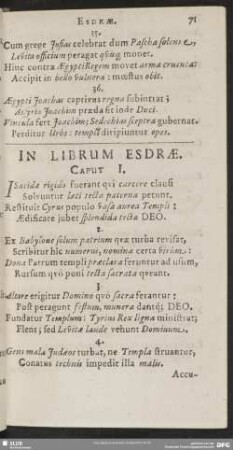 ESDRÆ. 71
35.
Cum grege Josias celebrat dum Pascha
Levita officium peragat
Hinc contra Ægypti Regem movet arma cruenta:
Accipit in bello vulnera: mœstus obit.
36.
Ægypti Joachas captivus regna subintrat;
Joachin præda est inde Duci.
Vincula fert Joachim; Sedechias sceptra gubernat.
Perditur Urbs: templi diripiuntur opes.
IN LIBRUM ESDRÆ.
CAPUT I.
ISacidæ rigido fuerant qui carcere clausi
Solvuntur læti tecta paterna petunt.
Restituit Cyrus populo vasa aurea Templi:
Ædificare jubet splendida tecta DEO.
2.
Ex Babylone solum patrium quæ turba revisit,
Scribitur hic numerus, nomina certa
Dona Patrum templi præclara feruntur ad usum,
Rursum quò poni tecta sacrata queant.
3.
Altare erigitur Domino quò sacra ferantur:
Post peragunt festum, munera dantq; DEO.
Fundatur Templum: Tyrius Rex ligna ministrat;
Flent; sed Levitæ laude vehunt Dominum.
4.
Gens mala Judæos turbat, ne Templa struantur,
Conatus technis impedit illa malis.
Accu-